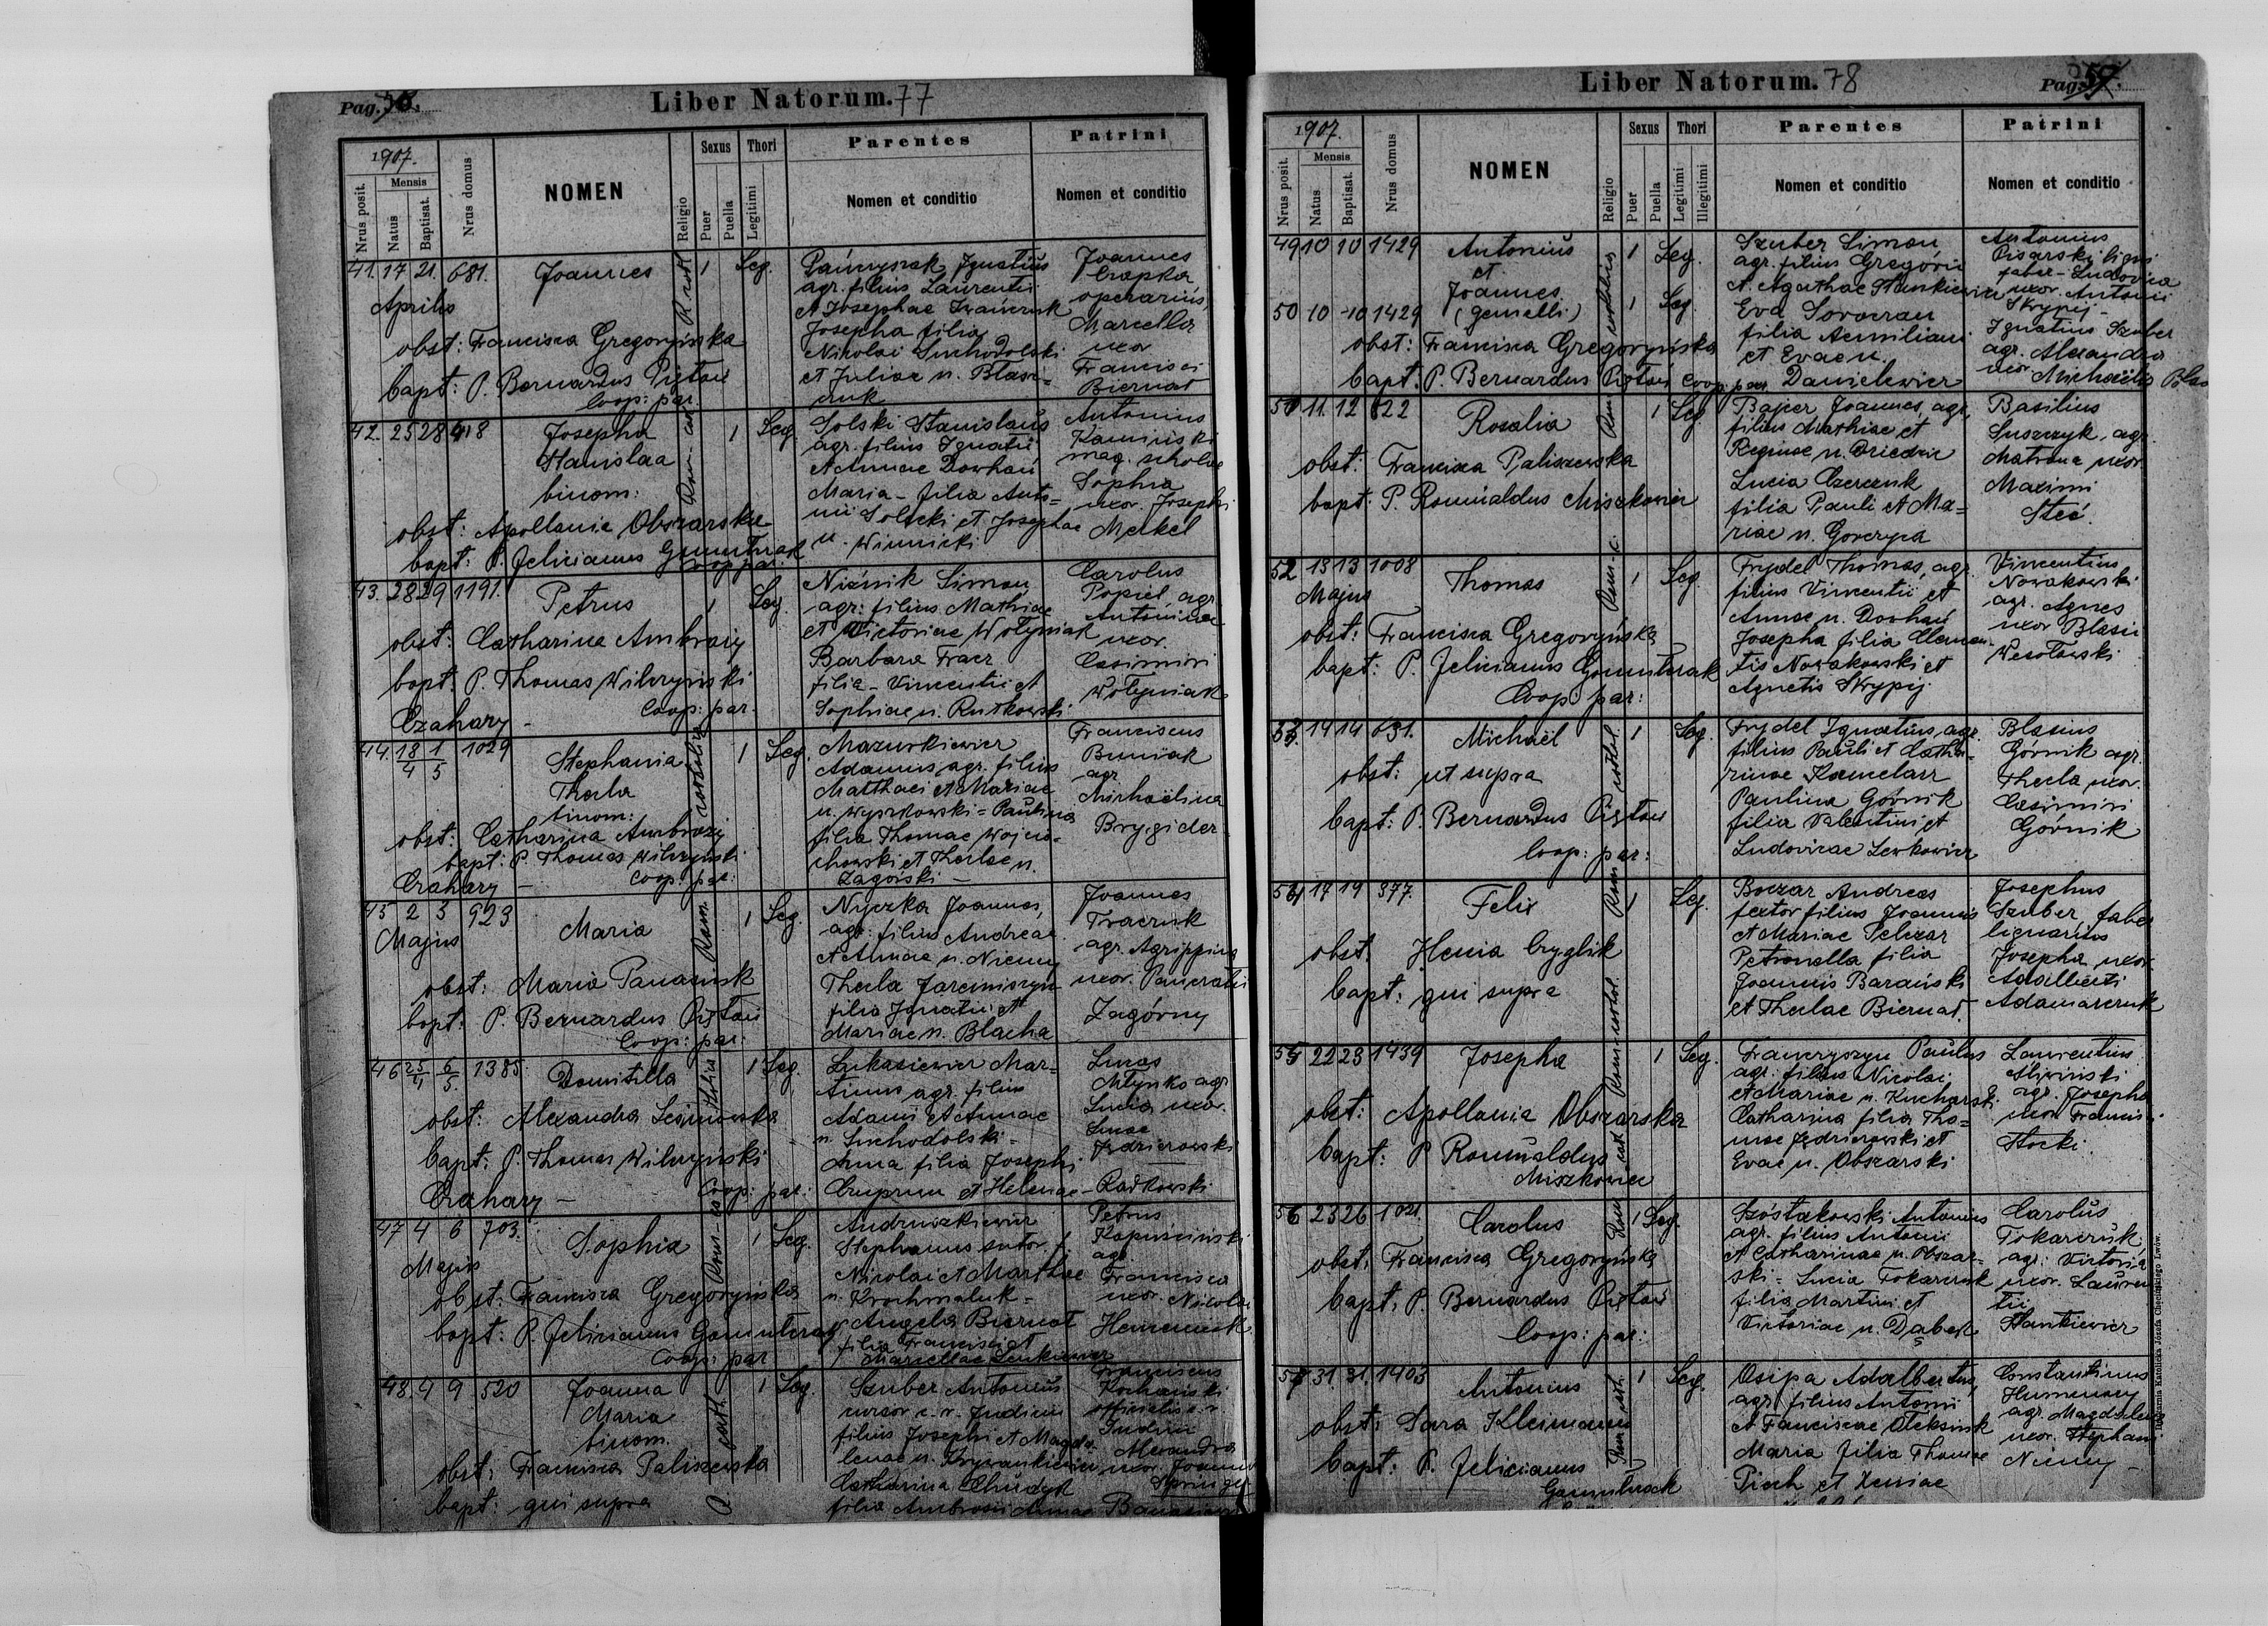 Pag. 56.
Liber Natorum. 77
1907.
Nrus posit.
Mensis
Natus
Baptisat.
Nrus domus
NOMEN
Religio
Sexus
Puer
Puella
Thori
Legitimi
Parentes
Nomen et conditio
Patrini
Nomen et conditio
41. 17 21. 681. Joannes 1 Leg.
Aprilis
obst: Francisca Gregoryńska
bapt: P. Bernardus Piętoń
Coop: par.
agr. filius Laurentii
et Josephae
Josepha filia
Nikolai Suchodolski
et Juliae n. Błasz=
czuk
Joannes
Czapka
operarius,
Marcella
uxor
Francisci
Biernat
42. 25 28 418 Josepha 1 Leg.
Stanislaa
binom:
obst: Apollonia Obszarska
bapt: P. Felicianus
Coop par.
Solski Stanislaus
agr. filius Ignatii
et Annae Dowhań
Maria - filia Anto=
nii Solecki et Josephae
n. Winnicki
Antonius
Kamiński
mag. scholae
Sophia
uxor. Josephi
Merkel
43. 28 29 1191. Petrus 1 Leg.
obst: Catharina Ambroży
bapt: P. Thomas Wilczyński
Coop: par.
Czahary -
Niźnik Simon
agr: filius Mathiae
et Victoriae Wołyniak
Barbara Tracz
filia - Vincentii et
Sophiae n. Rutkowski
Carolus
Popiel, agr.
Antonina
uxor.
Casimiri
Wołyniak
44. 18/4 1/5 1029 Stephania 1 Leg.
Thecla
binom:
obst: Catharina Ambroży
bapt: P. Thomas Wilczyński
Coop: par:
Czahary -
Mazurkiewicz
Adamus, agr. filius
Matthaei et Mariae
n. Wyszkowski = Paulina
filia Thomae Wojcie-
chowski et Theclae n.
Zagórski -
Franciscus
Buniak
agr
Michaëlina
Brygider
45 2 3 923 Maria 1 Leg.
Majus
obst: Maria Panasiuk
bapt: P. Bernardus Piętoń
Coop: par:
Nyczka Joannes,
agr: filius Andreae
et Annae n. Niemy
Thecla
filia Ignatii et
Mariae n. Blacha
Joannes
Traczuk
agr. Agrippina
uxor. Pancratii
Zagórny
46 25/4 6/5. 1385. Domitilla 1 Leg.
obst: Alexandra
bapt: P. Thomas Wilczyński
Coop: par:
Czahary -
Łukasiewicz Mar=
tinus agr. filius
Adami et Annae
n. Suchodolski -
Anna filia Josephi
Cuprun et Helenae - Radkowski
Lucas
Młynko agr
Lucia uxor.
Lucae
Jędrzejowski
47 4 6 703. Sophia 1 Leg.
Majus
obst: Francisca Gregoryńska
bapt: P. Felicianus
Coop: par
Andruszkiewicz
Stephanus sutor. f.
Nicolai et Marthae
n. Krochmaluk =
Angela Biernat
filia Francisci et
Marcellae
Petrus
Kapuściński
agr
Francisca
uxor. Nicolai
48. 4 9 520 Joanna 1 Leg.
Maria
binom.
obst: Francisca Paliszewska
bapt: qui supra
Szuber Antonius
cursor c. r. Judicii
filius Josephi et Magda-
lenae n.
Catharina Chudyk
filia Ambrosii
Franciscus
Kochański
officialis c. r.
Judicii
Alexandra
uxor. Joannis
Springer
Liber Natorum. 78
Pag. 57.
1907.
Nrus posit.
Mensis
Natus
Baptisat.
Nrus domus
NOMEN
Religio
Sexus
Puer
Puella
Thori
Legitimi
Illegitimi
Parentes
Nomen et conditio
Patrini
Nomen et conditio
49 10 10 1429 Antonius 1 Leg.
et
50 10 10 1429 Joannes 1 Leg.
(gemelli)
obst: Francisca Gregoryńska
bapt. P. Bernardus Piętoń Coop: par
Szuber Simon
agr. filius Gregorii
et Agathae Stankiewicz
Eva
filia Aemiliani
et Evae n.
Danielewicz
Antonius
Pisarski lign.
faber - Ludovica
uxor. Antonii
Skrypij -
Ignatius Szuber
agr. Alexandra
uxor. Michaëlis
51 11. 12 622 Rosalia 1 Leg.
obst: Francisca Paliszewska
bapt: P. Romualdus Miszkowicz
Bajcer Joannes, agr,
filius Mathiae et
Reginae n.
Lucia Czerczuk
filia Pauli et Ma=
riae n. Gorczyca
Basilius
Suszczyk, agr.
Matrona uxor.
Maximi
Steć.
52 13 13 1008 Thomas 1 Leg.
Majus
obst: Francisca Gregoryńska
bapt: P. Felicianus
Coop: par:
Frydel Thomas, agr.
filius Vincentii et
Annae n. Dowhań
Josepha filia Clemen-
tis Nowakowski et
Agnetis Skrypij.
Vincentius
Nowakowski
agr. Agnes
uxor Blasii
Wesołowski
53. 14 14 631. Michaël 1 Leg.
obst: ut supra
bapt: P. Bernardus Piętoń
Coop: par:
Frydel Ignatius, agr.
filius Pauli et Catha-
rinae Kamelarz
Paulina Górnik
filia Valentini et
Ludovicae Lewkowicz
Blasius
Górnik agr.
Thecla uxor.
Casimiri
Górnik
54 17 19 377. Felix 1 Leg.
obst. Henia Cyglik
bapt: qui supra
Boczar Andreas
textor filius Joannis
et Mariae Pelczar
Petronella filia
Joannis Barański
et Theclae Biernat.
Josephus
Szuber faber
lignarius
Josepha uxor.
Adalberti
Adamarczuk
55 22 23 1439 Josepha 1 Leg.
obst: Apollonia Obszarska
bapt: P Romualdus
Miszkowicz
Francryszyn Paulus
agr. filius Nicolai
et Mariae n. Kucharski.
Catharina filia Tho=
mae Jędrzejowski et
Evae n. Obszarski
Laurentius
Śliwiński
agr. Josepha
uxor. Francisci
Stocki.
56 25 26 1021. Carolus 1 Leg.
obst. Francisca Gregoryńska
bapt. P. Bernardus Piętoń
Coop: par:
Szóstakowski Antonius
agr. filius Antonii
et Catharinae n. Obszar-
ski = Lucia Tokarczuk
filia Martini et
Victoriae n. Dąbek
Carolus
Tokarczuk
agr. Victoria
uxor. Lauren
tii
Stankiewicz
57 31. 31. 1403 Antonius 1 Leg.
obst: Sara Kleimann
bapt: P. Felicianus
Osipa Adalbertus,
agr. filius Antonii
et Franciscae Oleksiuk
Maria filia Thomae
Pioch et Xeniae
Constantinus
Humenny
agr. Magdalena
uxor. Stephani
Niemy -
Drukarnia Katolicka Józefa Chęcińskiego Lwów.